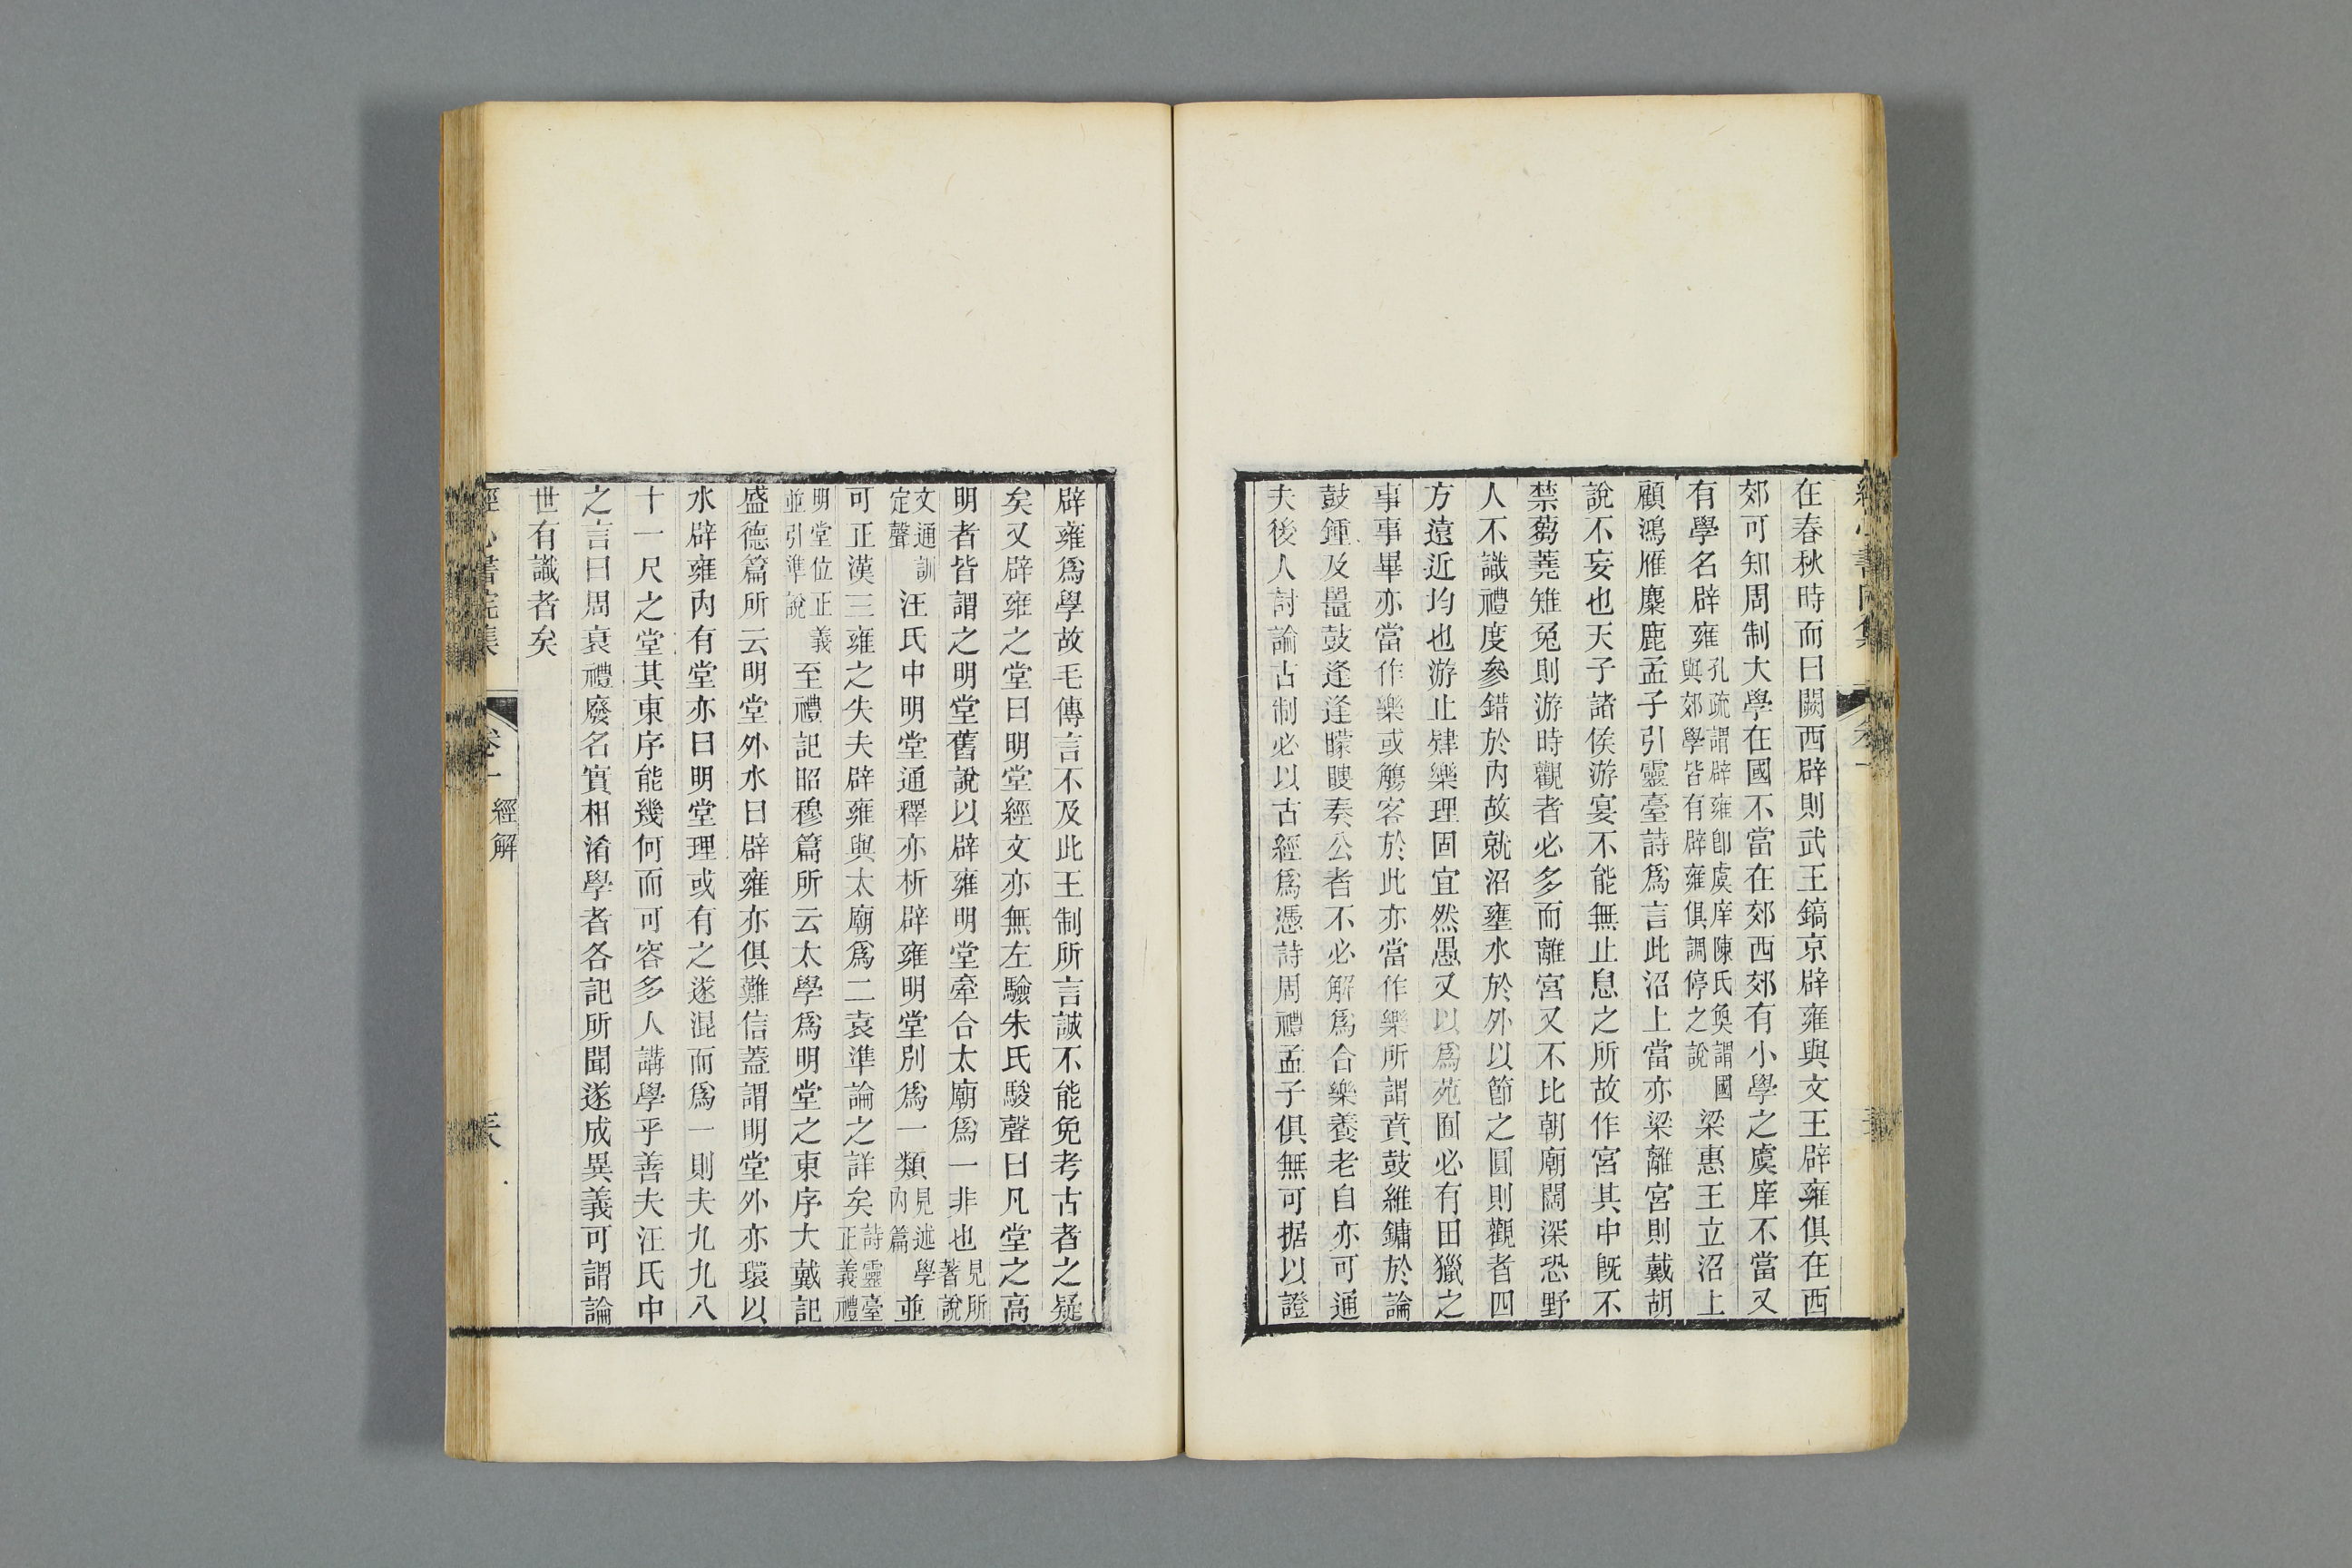 在春秋時而曰闕西辟則武王鎬京辟雍與文王辟雍俱在西
郊可知周制大學在國不當在郊西郊有小學之虞庠不當又
有學名辟雍孔疏謂辟雍卽虞庠陳氏奐謂國與郊學皆有辟雍俱調停之說梁惠王立沼上
顧鴻雁麋鹿孟子引靈臺詩爲言此沼上當亦梁離宮則戴胡
說不妄也天子諸侯游宴不能無止息之所故作宮其中旣不
禁芻蕘雉兔則游時觀者必多而離宮又不比朝廟闊深恐野
人不識禮度參錯於內故就沼壅水於外以節之圓則觀者四
方遠近均也游止肄樂理固宜然愚又以爲苑囿必有田獵之
事事畢亦當作樂或觴客於此亦當作樂所謂賁鼓維鏞於論
鼓鍾及鼉鼓逢逢矇瞍奏公者不必解爲合樂養老自亦可通
夫後人討論古制必以古經爲憑詩周禮孟子俱無可据以證
辟雍爲學故毛傳言不及此王制所言誠不能免考古者之疑
矣又辟雍之堂曰明堂經文亦無左驗朱氏駿聲曰凡堂之高
明者皆謂之明堂舊說以辟雍明堂牽合太廟爲一非也見所著說
文通訓定聲汪氏中明堂通釋亦析辟雍明堂別爲一類見述學內篇並
可正漢三雍之失夫辟雍與太廟爲二袁準論之詳矣詩靈臺正義禮
明堂位正義並引準說至禮記昭穆篇所云太學爲明堂之東序大戴記
盛德篇所云明堂外水曰辟雍亦俱難信蓋謂明堂外亦環以
水辟雍內有堂亦曰明堂理或有之遂混而爲一則夫九九八
十一尺之堂其東序能幾何而可容多人講學乎善夫汪氏中
之言曰周衰禮廢名實相淆學者各記所聞遂成異義可謂論
世有識者矣
經心書院集
卷一
經解